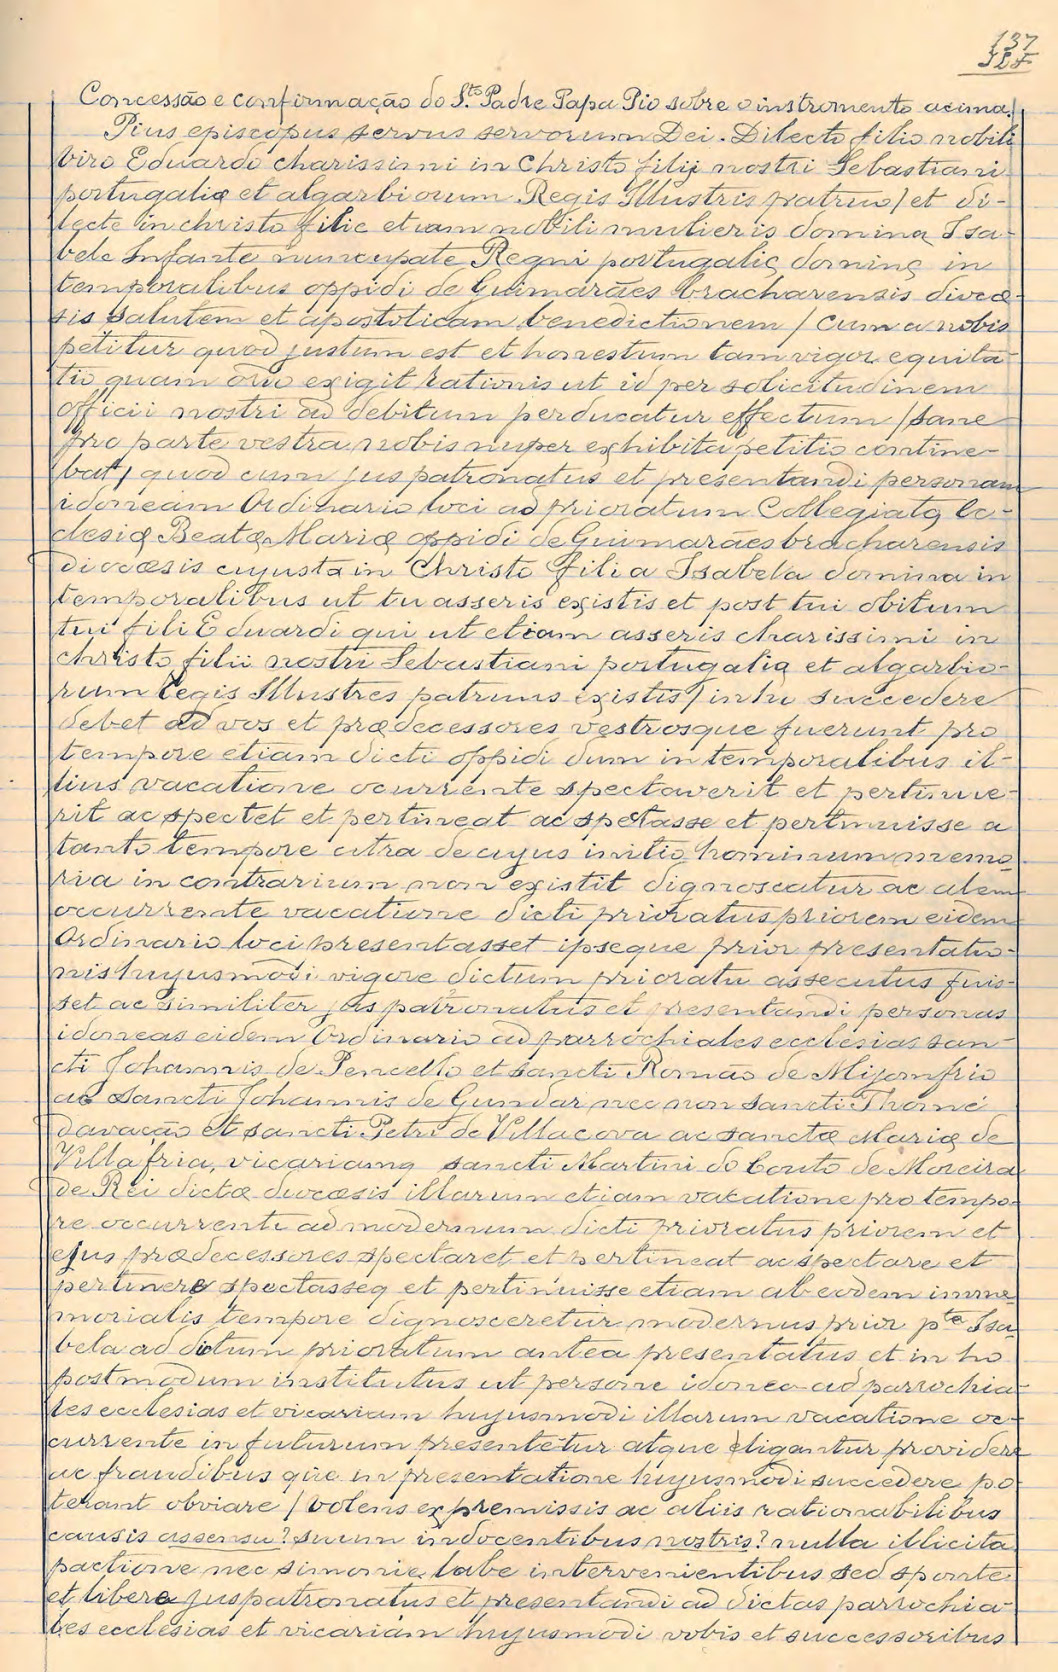 137
Concessão e confirmação do S.to Padre Papa Pio sobre o instromento acima.
Pius episcopus servus servorum Dei. Dilecto filio nobili
viro Eduardo charissimi in Christo filij nostri Sebastiani
portugalię et algarbiorum Regis Illustris patruo / et di-
lecte in christo filie etiam nobili mulieris domina Isa-
bele Infante nuncupate Regni portugalię dominę in
temporalibus oppidi de Guimarães bracharensis diocæ-
sis salutem et apostolicam benedictionem / Cum a nobis
petitur quod justum est et honestum tam vigor equita-
tis quam ordo exigit rationis ut id per solicitudinem
officii nostri ad debitum perducatur effectum / sane
pro parte vestra nobis nuper exhibita petitio contine-
bat, quod cum jus patronatus et presentandi personam
idoneam Ordinario loci ad prioratum Collegiatę Ec-
clesię Beatę Marię oppidi de Guimarães bracharensis
diocæsis cujusta in Christo filia Isabela domina in
temporalibus ut tu asseris existis et post tui obitum
tui fili Eduardi qui ut etiam asseris charissimi in
christo filii nostri Sebastiani portugalię et algarbio-
rum Regis Illustres patruus existis / in hu succedere
debet ad vos et prædecessores vestrosque fuerunt pro
tempore etiam dicti oppidi dum in temporalibus il-
lius vacatione ocurrente spectaverit et pertinue-
rit ac spectet et pertineat ac spectasse et pertinuisse a
tanto tempore citra de cujus initio hominum memo-
ria in contrarium non existit dignoscatur ac alem
occurrente vacatione dicti prioratus priorem eidem
Ordinario loci presentasset ipseque prior presentatio-
nis hujusmodi vigore dictum prioratu assecutus fuis-
set ac similiter jus patronatus et presentandi personas
idoneas eidem Ordinario ad parrochiales ecclesias san-
cti Johannis de Pencello et sancti Romão de Mijomfrio
ac Sancti Johannis de Gundar nec non Sancti Thomé
davação et sancti Petri de Villacova ac sanctæ Marię de
Villafria, vicariamq sancti Martini do Couto de Moreira
de Rei dictæ diocæsis illarum etiam vacatione pro tempo-
re occurrenti ad modernum dicti prioratus priorem et
ejus prædecessores spectaret et pertineat ac spectare et
pertinere spectasseq et pertinuisse etiam ab eodem imme-
morialis tempore dignosceretur modernus prior pta Isa-
bela ad dictum prioratum antea presentatus et in ho
postmodum institutus ut persone idonee ad parrochia-
les ecclesias et vicariam hujusmodi illarum vacatione oc-
currente in futurum presentetur atque eligantur providere
ac fraudibus que in presentatione hujusmodi succedere po-
terant obviare / volens ex premissis ac aliis rationabilibus
causis assensu? suum indocentibus nostris? nulla illicita
pactione nec simonie labe intervenientibus sed sponte
et libere juspatronatus et presentandi ad dictas parrochia-
les ecclesias et vicariam hujusmodi vobis et successoribus